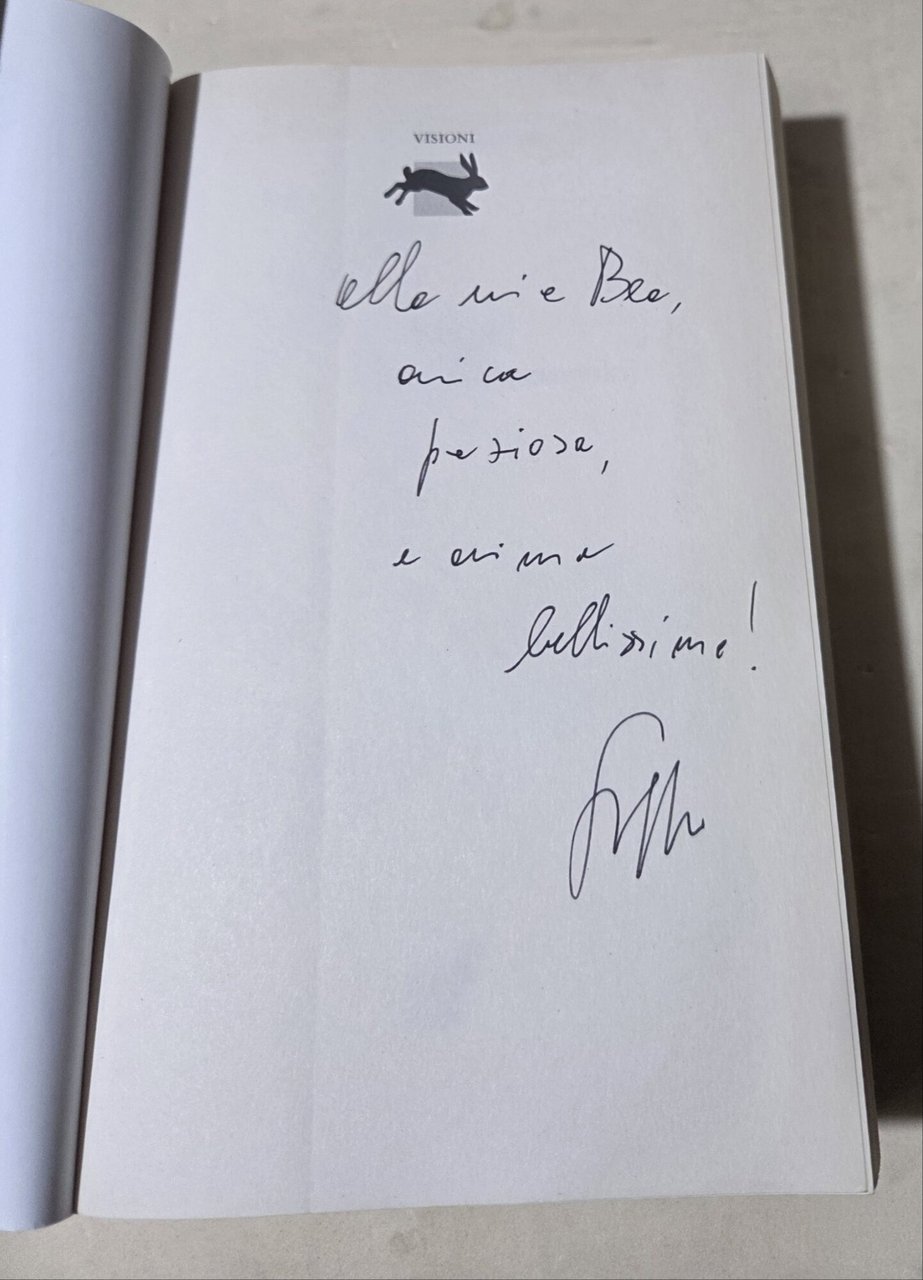 VISIONI
alla mia Bea,
amica
preziosa,
e anima
bellissima!